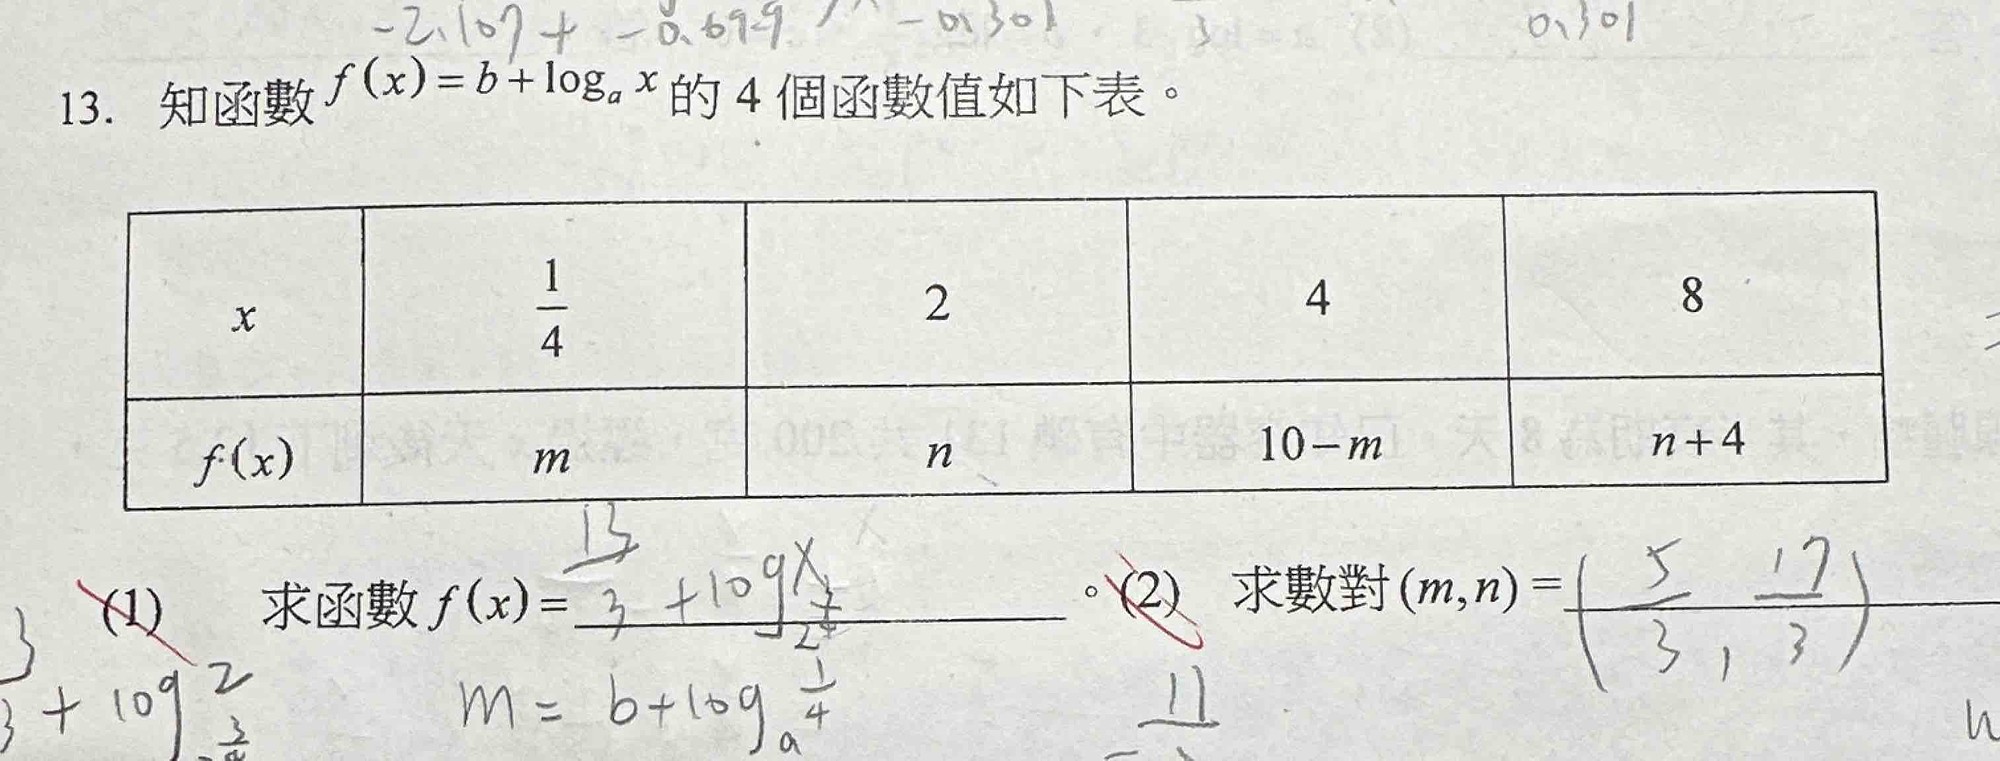 -2.107 + -0.699 -0.301 3 0.301
13. 知函數 f(x)=b+logₐ x 的 4 個函數值如下表。
x 1/4 2 4 8
f(x) m n 10-m n+4
(1) 求函數 f(x)= 13/3 + log x 。 (2) 求數對(m,n)= (5/3, 17/3)
3 + log 2
m = b+logₐ 1/4
11